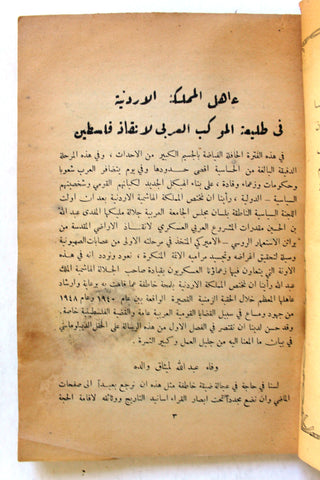 عاهل المملكة الاردنية
فى طليعة الموكب العربى لانقاذ فلسطين
في هذه الفترة الحافلة الفياضة بالجسيم الكبير من الاحداث ، وفي هذه المرحلة
الدقيقة البالغة من الحساسية اقصى حدودها وفي يوم يتضافر العرب شعوباً
وحكومات وزعماء وقادة ، على بناء الهيكل الجديد لكيانهم القومي وشخصيتهم
السياسية - الدولية ، رأينا ان نختص المملكة الاردنية الهاشمية بعد ان اولت
اللجنة السياسية الناطقة بلسان مجلس الجامعة العربية جلالة مليكها المفدى عبد الله
بن الحسين مقدرات المشروع العربي العسكري لانقاذ الاراضي المقدسة من
براثن الاستعمار الروسي - الاميركي المتخذ في مرحلته الاولى من عصابات الصهيونية
وسيلة لتحقيق اغراضه وتجسيد مراميه الاثمة النكراء ، نعود ونردد انه في هذه
الاونة التي يتعاون فيها زعماؤنا العسكريون بقيادة صاحب الجلالة الهاشمية الملك
عبد الله رأينا ان نختص المملكة الاردنية بلمحة خاطفة عما قامت به برعاية وارشاد
عاهلها المعظم خلال الحقبة الزمنية القصيرة الواقعة بين عام ١٩٤٠ وعام ١٩٤٨
من جهود ومساع في سبيل القضايا القومية العربية عامة والقضية الفلسطينية خاصة .
وقد حسن لدينا ان نقتصر في الفصل الاول من هذه الرسالة على الحقل الدبلوماتي
في بيان ما المعنا اليه من جليل العمل وكبير الثمرة .
وفاء عبد الله لميثاق والده
لسنا في حاجة في عجالة ضيقة خاطفة مثل هذه ان نرجع بعيداً الى صفحات
الماضي وان نضع مجدداً تحت ابصار القراء اسانيد التاريخ ووثائقه لاقامة الحجة
٣